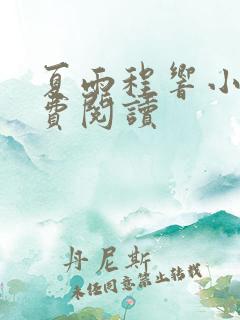 夏雨程響小
費閱讀
丹尼斯
未经同意禁止转载